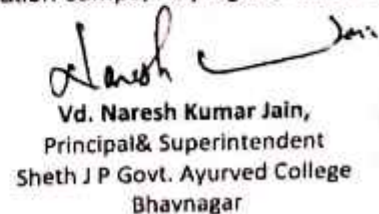 Naresh Jain
Vd. Naresh Kumar Jain,
Principal& Superintendent
Sheth J P Govt. Ayurved College
Bhavnagar